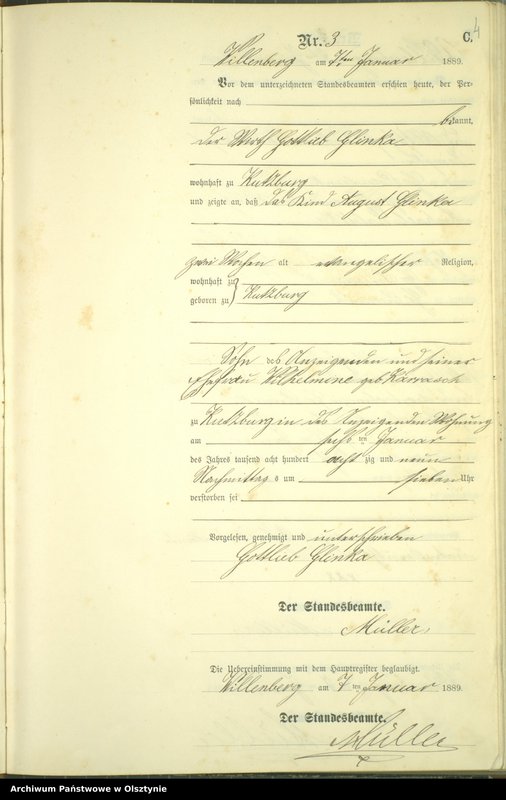 4
Nr. 3 C.
Willenberg am 7ten Januar 1889.
Vor dem unterzeichneten Standesbeamten erschien heute, der Per-
sönlichkeit nach
bekannt,
der Wirth Gottlieb Glinka
wohnhaft zu Kutzburg
und zeigte an, daß das Kind August Glinka
zwei Wochen alt evangelischer Religion,
wohnhaft zu
geboren zu Kutzburg
Sohn des Anzeigenden und seiner
Ehefrau Wilhelmine geb Karrasch
zu Kutzburg in des Anzeigenden Wohnung
am sechsten Januar
des Jahres tausend acht hundert achtzig und neun
Nachmittags um sieben Uhr
verstorben sei
Vorgelesen, genehmigt und unterschrieben
Gottlieb Glinka
Der Standesbeamte.
Müller
Die Uebereinstimmung mit dem Hauptregister beglaubigt.
Willenberg am 7ten Januar 1889.
Der Standesbeamte.
Müller
Archiwum Państwowe w Olsztynie